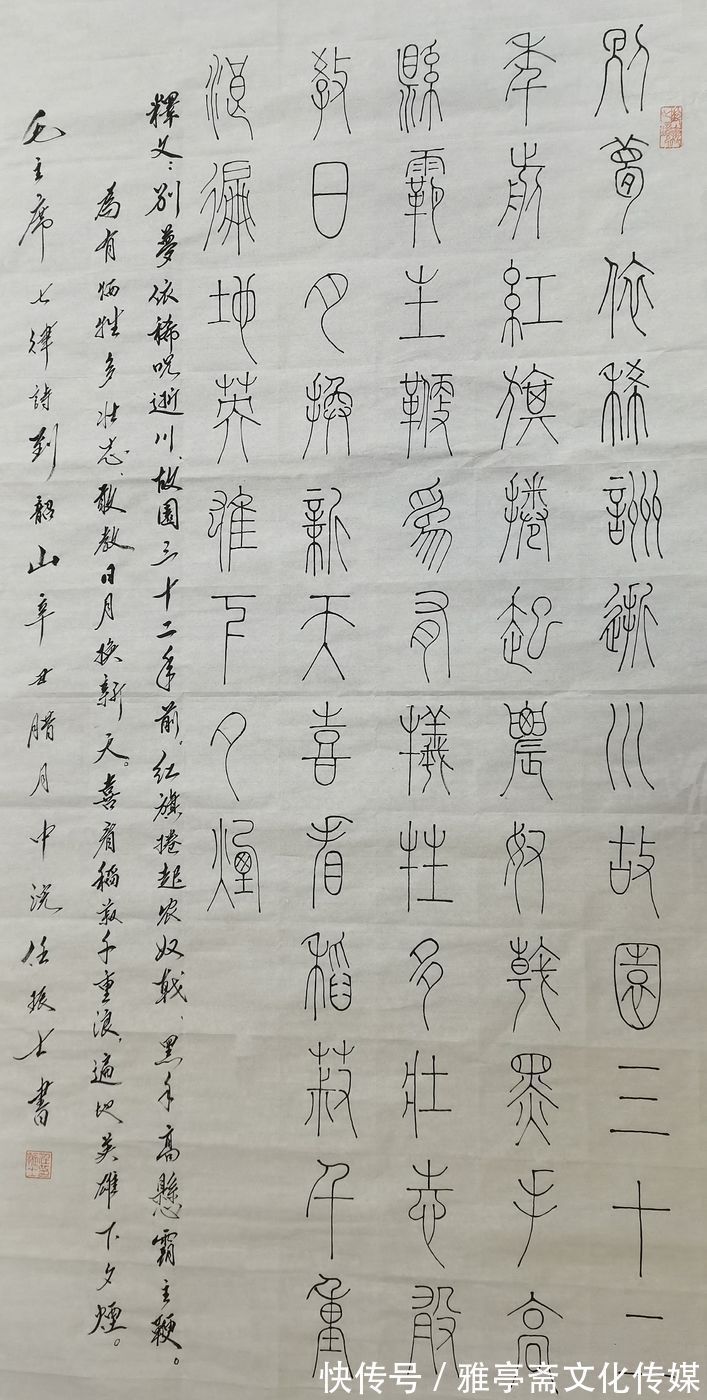 別夢依稀詶逝川故園三十二
年前紅旗捲起農奴戟黑手高
縣霸主鞭爲有犧牲多壯志敢
教日月換新天喜看稻菽千重
浪徧地英雄下夕煙
釋义：别夢依稀咒逝川，故園三十二年前。红旗捲起农奴戟，黑手高懸霸主鞭。
為有牺牲多壮志，敢教日月换新天。喜看稻菽千重浪，遍地英雄下夕煙。
毛主席七律詩到韶山辛丑腊月中浣任振士書
快传号／雅亭斋文化传媒